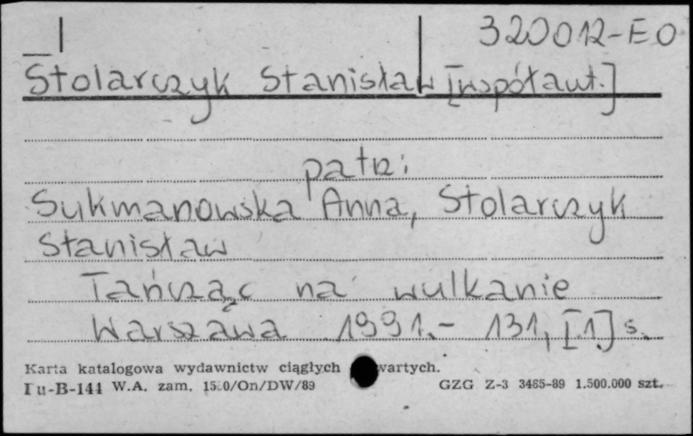 320012-EO
Stolarczyk Stanisław [współaut.]
patrz:
Sukmanowska Anna, Stolarczyk
Stanisław
Tańcząc na wulkanie
Warszawa 1991.- 131, [1] s.
Karta katalogowa wydawnictw ciągłych wartych.
Pu-B-144 W.A. zam. 1520/On/DW/89 GZG Z-3 3465-89 1.500.000 szt.